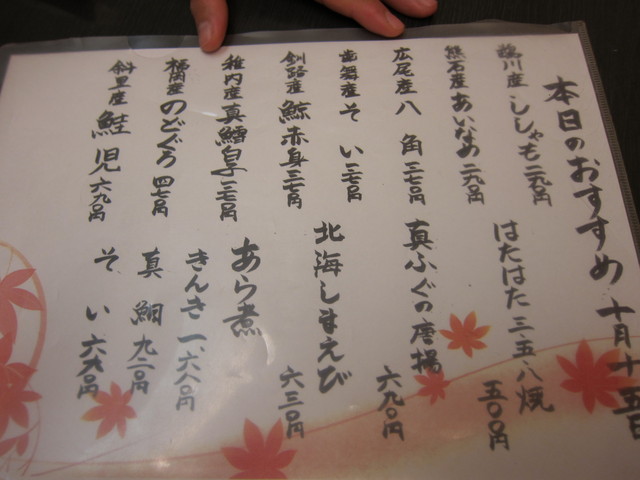 本日のおすすめ 十月十五日
鵡川産 ししゃも 二九〇円
熊石産 あいなめ 二九〇円
広尾産 八角 三七〇円
歯舞産 そい 一七〇円
釧路産 鯨赤身 三七〇円
稚内産 真鱈 一七〇円
福岡産 のどぐろ 四七〇円
斜里産 鮭児 六九〇円
はたはた三五八焼 五〇〇円
真ふぐの唐揚 六九〇円
北海しまえび 六三〇円
あら煮
きんき 一、六八〇円
真鯛 九二〇円
そい 六六〇円